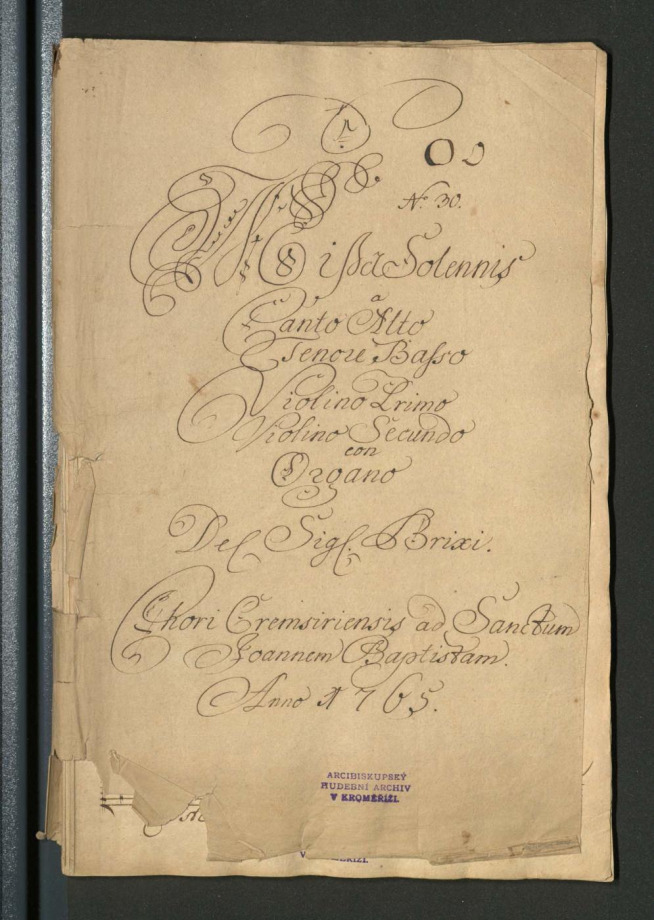 N: 30.
Missa Solennis
a
Canto Alto
Tenore Basso
Violino Primo
Violino Secundo
con
Organo
Del Sig. Brixi.
Chori Cremsiriensis ad Sanctum
Joannem Baptistam.
Anno 1765.
ARCIBISKUPSKÝ
HUDEBNÍ ARCHIV
V KROMĚŘÍŽI.